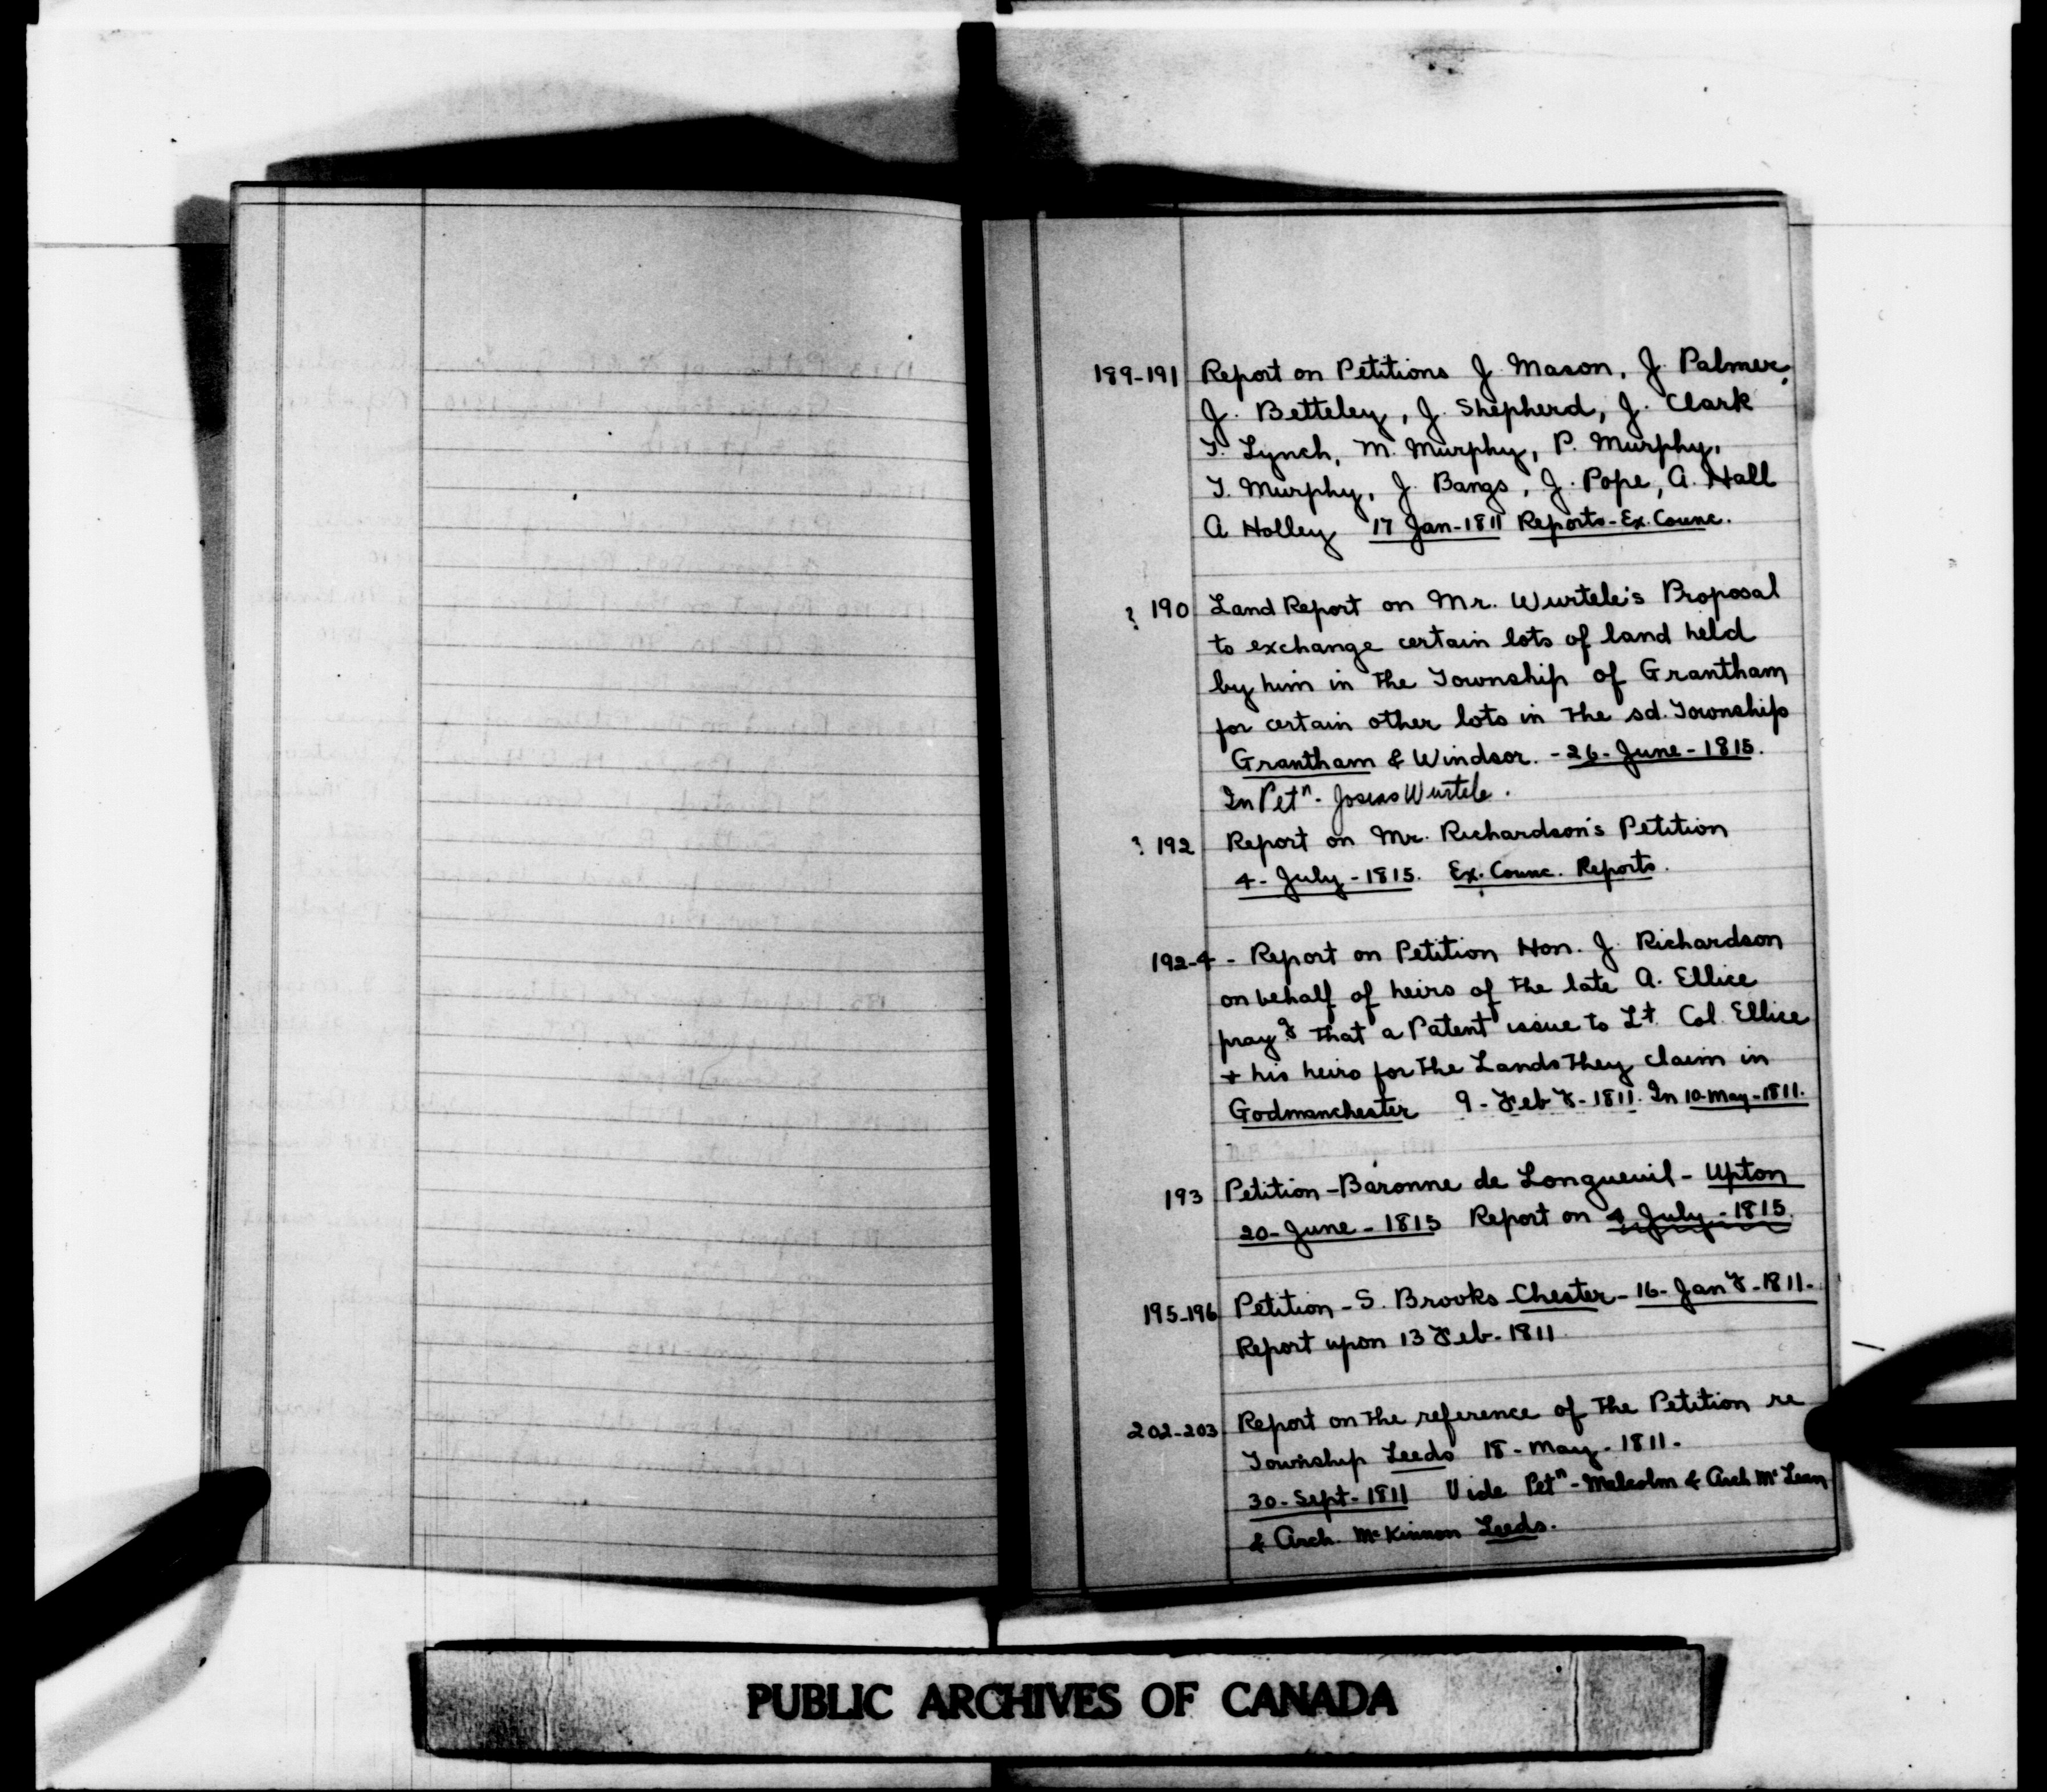 189-191 Report on Petitions J. Mason, J. Palmer,
J. Betteley, J. Shepherd, J. Clark
T. Lynch, M. Murphy, P. Murphy,
T. Murphy, J. Bangs, J. Pope, A. Hall
A Holley 17 Jan-1811 Reports-Ex. Counc.
? 190 Land Report on Mr. Wurtele's Proposal
to exchange certain lots of land held
by him in the Township of Grantham
for certain other lots in the sd. Township
Grantham & Windsor. - 26-June-1815.
In Petn - Josias Wurtele.
? 192 Report on Mr. Richardson's Petition
4-July-1815. Ex. Counc. Reports.
192-4 - Report on Petition Hon. J. Richardson
on behalf of heirs of the late A. Ellice
prayg that a Patent issue to Lt. Col. Ellice
+ his heirs for the Lands they claim in
Godmanchester 9-Feby-1811. In 10-May-1811.
193 Petition-Baronne de Longueuil-Upton
20-June-1815 Report on 4 July-1815.
195-196 Petition-S. Brooks-Chester-16-Jany-1811-
Report upon 13 Feb-1811
202-203 Report on the reference of the Petition re
Township Leeds 18-May-1811-
30-Sept-1811 Vide Petn-Malcolm & Arch McLean
& Arch. McKinnon Leeds.
PUBLIC ARCHIVES OF CANADA